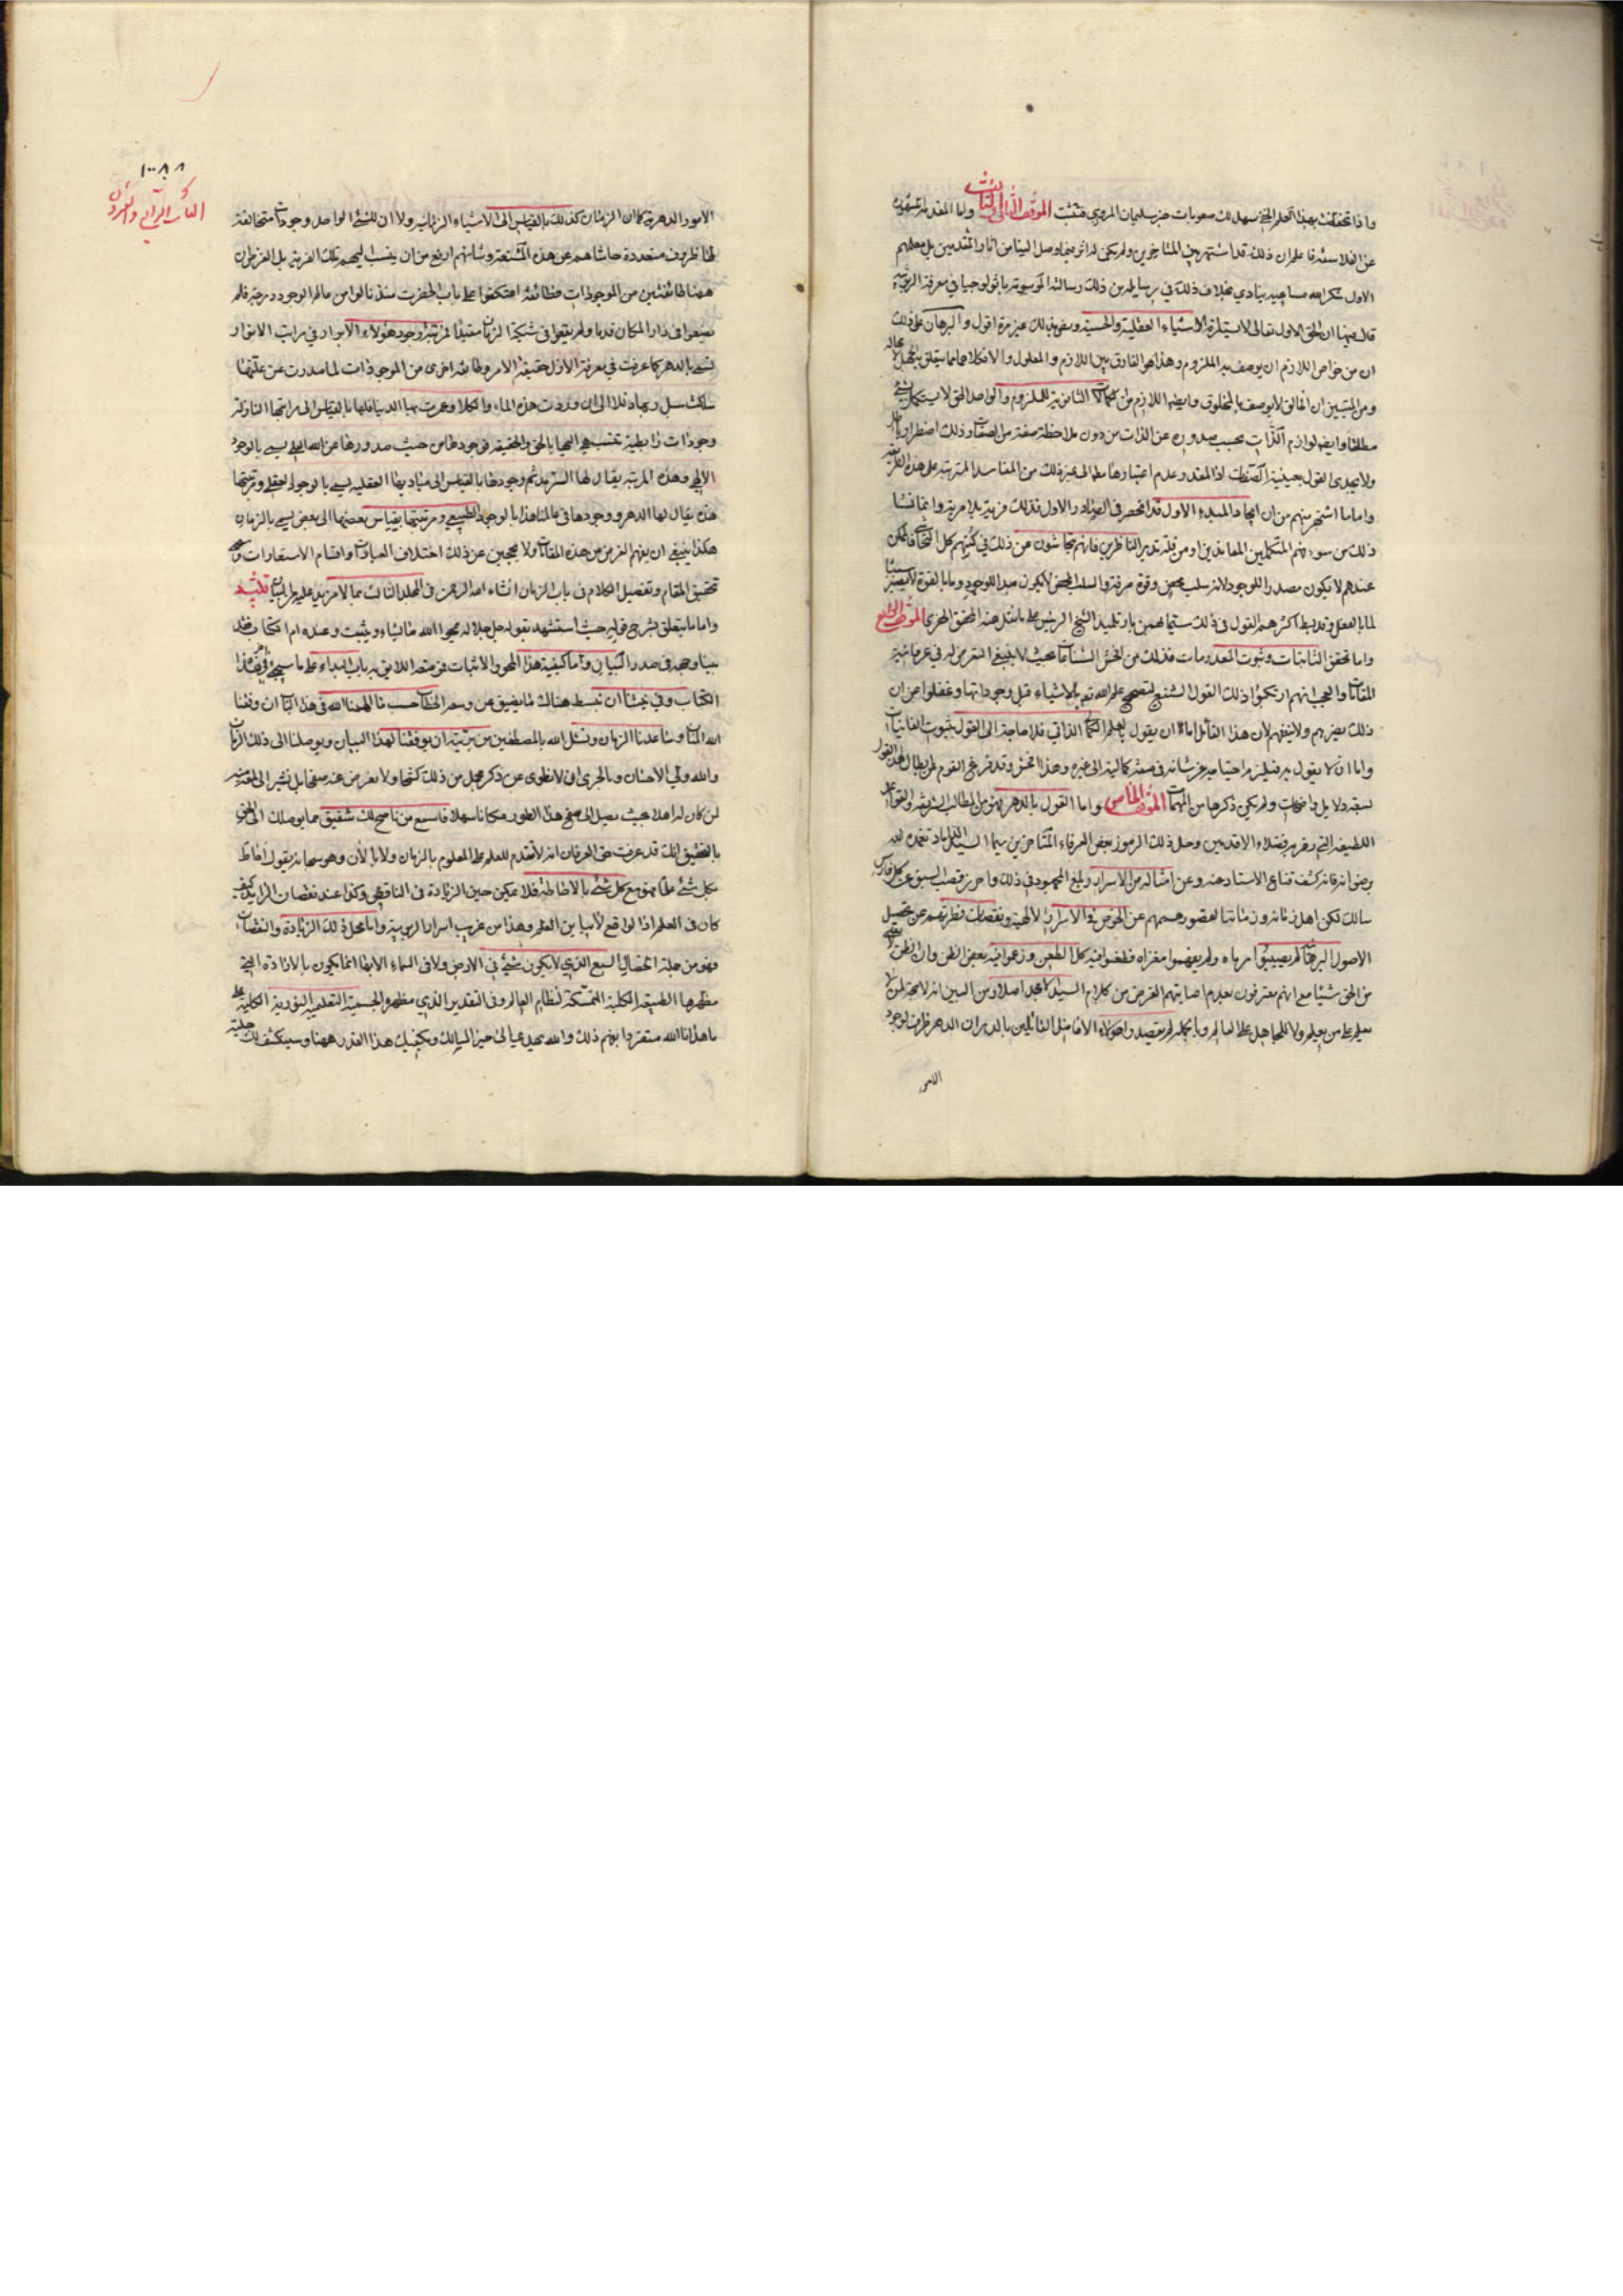 واذا تحققت بهذا العلم الحق سهل لك صعوبات خبر سليمان المروزي فتثبت الموقف الثالث واما المقدمة
عن الفلاسفة فاعلم ان ذلك قد اشتهر بين المتأخرين ولم يكن له اثر فيما وصل الينا من آثار المتقدمين بل معلمهم
الاول شكر الله مساعيه ينادي بخلاف ذلك في رسائله من ذلك رسالته الموسومة باثولوجيا في معرفة الربوبية
قال فيها ان الحق الاول تعالى لا يستلزمه الأشياء العقلية والحسية غير مرة اقول والبرهان على ذلك
ان من خواص اللازم ان يوصف به الملزوم وهذا هو الفارق بين اللازم والمعلول
ومن المستبين ان الخالق لا يوصف بالمخلوق وايضا اللازم من الكمالات الثانوية للملزوم والواحد الحق لا يستكمل بشيء
مطلقا وايضا لوازم الذات بحسب صدوره عن الذات من دون ملاحظة صفة من الصفات وذلك اضطرار
ولا يجدي القول بعينية الصفات المفاسد المترتبة على هذه
واما ما اشتهر بينهم من ان ايجاد المبدء الاول قد انحصر في الصادر الاول فذلك فرية بلا مرية وانما نشأ
ذلك من سوء فهم المتكلمين المعاندين او من قلة تدبر الناظرين فانهم يتحاشون عن ذلك في كتبهم كل التحاشي
عندهم لا يكون مصدرا للوجود لانه سلب محض وقوة صرفة والسلب المحض لا يكون مبدأ للوجود وما بالقوة لا يصير سببا
لما بالفعل وقد بسط اكثرهم القول في ذلك سيما بهمنيار تلميذ الشيخ الرئيس على ما نقل عنه المحقق الخفري الموقف الرابع
واما تحقق الثابتات وثبوت المعدومات فذلك من افحش الشناعات بحيث لا ينبغي التعرض له في عرفاننا
المقامات والعجب انهم ارتكبوا ذلك القول الشنيع لتصحيح علم الله تعالى بالاشياء قبل وجوداتها وغفلوا عن ان
ذلك يضرهم ولا ينفعهم لأن هذا القائل اما ان يقول بعلم الكمالي الذاتي فلا حاجة الى القول بثبوت
واما ان لا يقول به فيلزم احتياجه عز شانه في صفته كمالية الى غيره وهذا افحش وقد فرغ القوم لابطال هذا القول
بعقد دلايل واضحات ولم يكن ذكرها من المهمات الموقف الخامس واما القول بالدهر فهو من المطالب الشريفة والقواعد
اللطيفة التي فضلاء الاقدمين وحل ذلك الرموز بعض العرفاء المتأخرين سيما السيد
كشف قناع الاستار عنه وعن امثاله من الاسرار وبلغ المجهود في ذلك واحرز قصب السبق عن كل فارس
سالك لكن اهل زمانه وزماننا لقصور هممهم عن الخوض في الاسرار الالهية ونقصان فطرتهم عن تحصيل
الاصول البرهانية لم يصيبوا مرماه ولم يفهموا مغزاه فطعنوا فيه كل الطعن وزعموا فيه بعض الظن وان الظن لا يغني
من الحق شيئا مع انهم معترفون بعدم اصابتهم الغرض من كلام السيد الامجد اصلا ومن البين انه لا حجة لمن لا
يعلم على من يعلم ولا للجاهل على العالم وبالجملة لم يقصد هؤلاء الافاضل القائلين بالدهر ان الدهر ظرف لوجود
الامور
١٠٠٨٨
الامور الدهرية كما ان الزمان كذلك بالقياس الى الاشياء الزمانية ولا ان للشيء الواحد وجودات متخالفة
لها ظروف متعددة حاشاهم عن هذه الشنعة وشانهم ارفع من ان ينسب اليهم تلك الفرية بل الغرض ان
ههنا طائفتين من الموجودات فطائفة اعتكفوا على باب الحضرت منذ نالوا من عالم الوجود درجة فلم
يضعوا في دار المكان قدما ولم يقعوا في شبكة الزمان مقيدا فمرتبة وجود هؤلاء الابرار في مراتب الانوار
تسمى بالدهر كما عرفت في معرفة الاول حقيقة الامر وطائفة اخرى من الموجودات لما صدرت عن علتها
سلكت سبل ربها ذللا الى ان وردت هذه الماء والكلأ وعمرت بها الدنيا فلها بالقياس الى مراتبها النازلة
وجودات رابطية تنتسب هي اليها بالحق والحقيقة فوجودها من حيث صدورها عن الله يسمى بالوجود
الالهي وهذه المرتبة يقال لها السرمد ثم وجودها بالقياس الى مباديها العقلية يسمى بالوجود العقلي ومرتبتها
هذه يقال لها الدهر ووجودها في عالمنا هذا بالوجود الطبيعي ومرتبتها بقياس بعضها الى بعض يسمى بالزمان
هكذا ينبغي ان يفهم الغرض من هذه المقامات ولا تحجبن عن ذلك اختلاف العبارات واقسام الاستعارات
تحقيق المقام وتفصيل الكلام في باب الزمان انشاء الله الرحمن في المجلد الثالث بما لا مزيد عليه
واما ما يتعلق بشرح قوله حيث استشهد بقوله جل جلاله يمحوا الله ما يشاء ويثبت وعنده ام الكتاب فقد
بينا وجهه في صدر البيان واما كيفية هذا المحو والاثبات فموضعه اللايق به باب البداء على ما سيجيء في هذا
الكتاب وفي نيتنا ان نبسط هناك ما يضيق عن وسعه الخطاب حسب ما الهمنا الله في هذا الباب ان وفقنا
الله المنان وساعدنا الزمان ونسئل الله بالمصطفين من بريته ان يوفقنا لهذا البيان ويوصلنا الى ذلك الزمان
والله ولي الاحسان وبالحري ان لا نطوى عن ذكر مجمل من ذلك كشحا ولا نعرض عنه صفحا بل نشير الى لمعة
لمن كان له اهلا بحيث يصل الى سفح هذا الطور مكانا سهلا فاسمع من ناصح لك شفيق ما يوصلك الى الحق
بالتحقيق انك قد عرفت حق العرفان انه لا تقدم للعلم على المعلوم بالزمان ولا بالآن وهو سبحانه يقول احاط
بكل شيء علما فهو مع كل شيء بالاحاطة فلا يمكن حين الزيادة في الناقص وكذا عند نقصان الزايد كيف
كان في العلم اذا لواقع لا يباين العلم وهذا من غريب اسرار الربوبية واما محل ذلك الزيادة والنقصان
فهو من جملة الخصال السبع الذي لا يكون شيء في الارض ولا في السماء الا بها انما يكون بالارادة التي
مظهرها الطبيعة الكلية الممسكة لنظام العالم وفي التقدير الذي مظهره الجسمية التعليمية النورية الكلية على
ما هدانا الله متفردا بفهم ذلك والله يهدي عيالى خير المسالك ويكفيك هذا القدر ههنا وسينكشف لك جلية